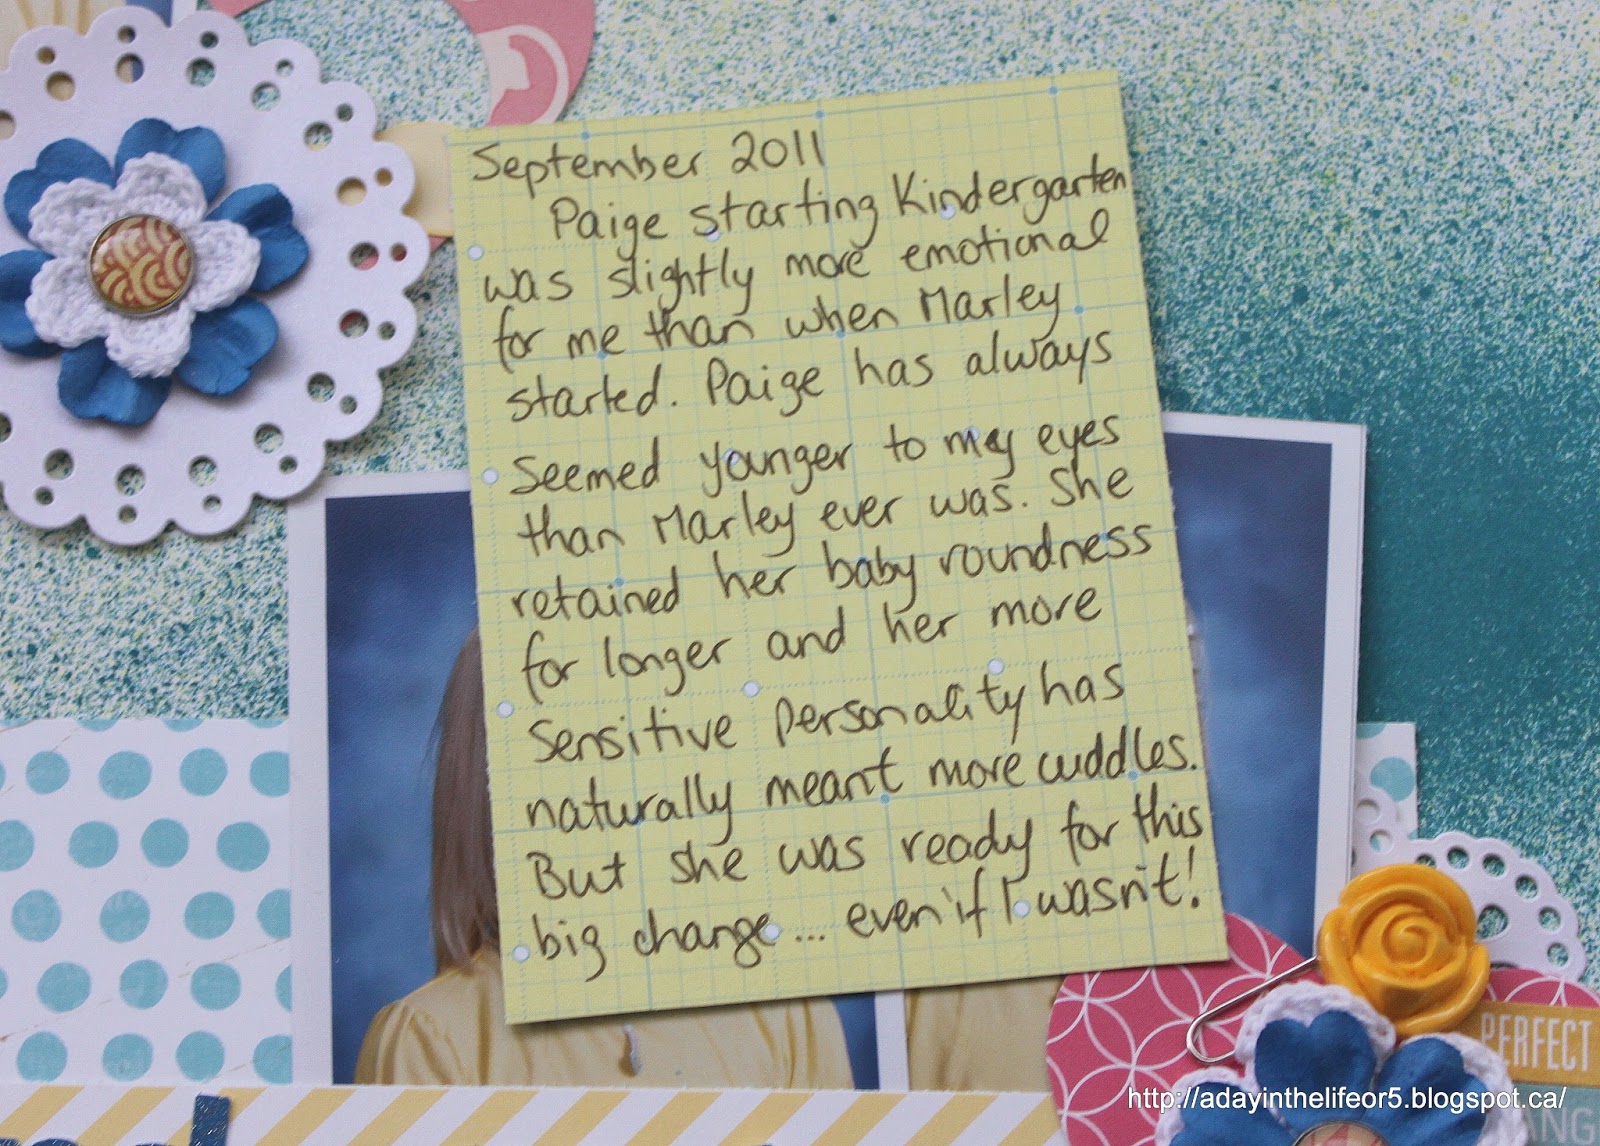 September 2011
Paige starting Kindergarten
was slightly more emotional
for me than when Marley
started. Paige has always
seemed younger to my eyes
than Marley ever was. She
retained her baby roundness
for longer and her more
sensitive personality has
naturally meant more cuddles.
But she was ready for this
big change... even if I wasn't!
PERFECT
http://adayinthelifeor5.blogspot.ca/